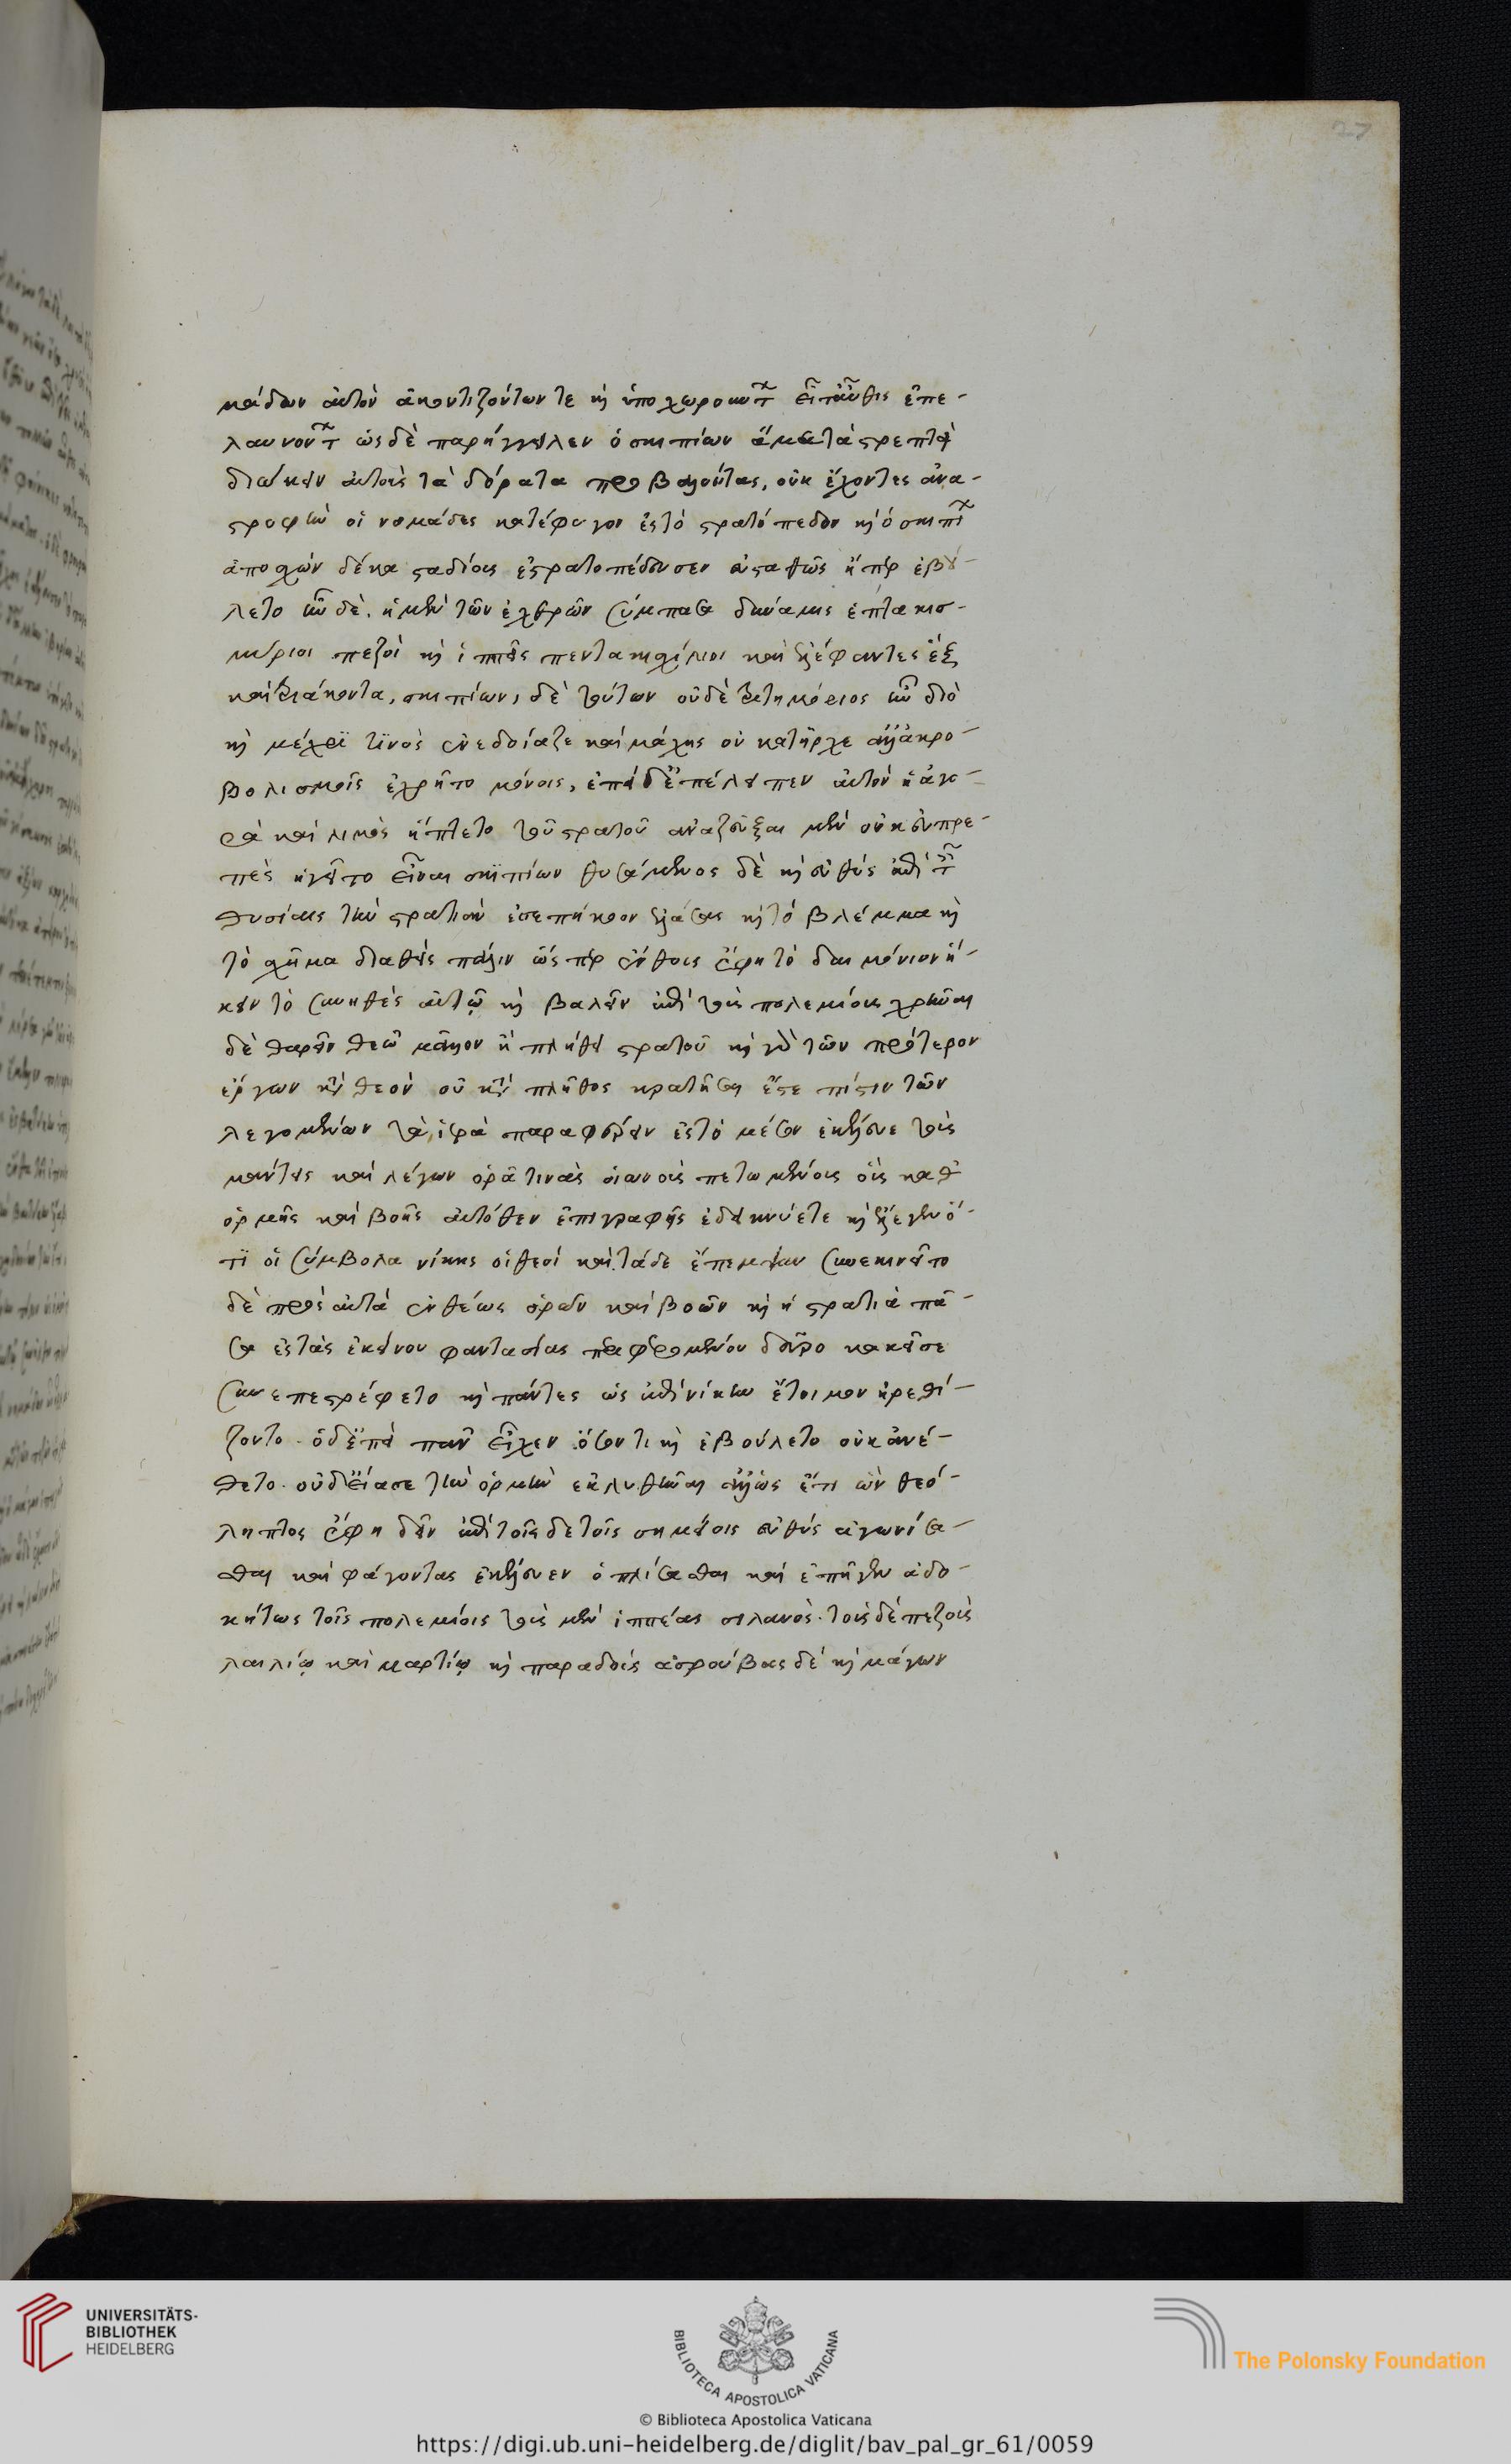 27
μάδων αὐτὸν ἀκοντιζόντων τε καὶ ὑποχωρούντων εἶτ' αὖθις ἐπε-
λαυνόντων ὡς δὲ παρήγγειλεν ὁ σκιπίων ἄμετάστρεπτεὶ
διώκειν αὐτοὺς τὰ δόρατα προβαλόντας, οὐκ ἔχοντες ἀνα-
στροφὴν οἱ νομάδες κατέφυγον ἐς τὸ στρατόπεδον καὶ ὁ σκιπίων
ἀποσχὼν δέκα σταδίους ἐστρατοπέδευσεν εὐσταθῶς ᾗπερ ἐβού-
λετο ἦν δὲ. ἡ μὲν τῶν ἐχθρῶν σύμπασα δύναμις ἑπτακισ-
μύριοι πεζοὶ καὶ ἱππεῖς πεντακισχίλιοι καὶ ἐλέφαντες ἓξ
καὶ τριάκοντα, σκιπίωνι δὲ τούτων οὐδὲ τριτημόριος ἦν διὸ
καὶ μέχρϊ τϊνὸς ἐνεδοίαζε καὶ μάχης οὐ κατῆρχε ἀλλ' ἀκρο-
βολισμοῖς ἐχρῆτο μόνοις, ἐπεὶ δ' ἐπέλειπεν αὐτὸν ἡ ἀγο-
ρὰ καὶ λιμὸς ἥπτετο τοῦ στρατοῦ ἀναζεῦξαι μὲν οὐκ εὐπρε-
πὲς ἡγεῖτο εἶναι σκϊπίων θυσάμενος δὲ καὶ εὐθὺς ἐπὶ ταῖς
θυσίαις τὴν στρατιὰν ἐς ἐπήκοον ἐλάσας καὶ τὸ βλέμμα καὶ
τὸ σχῆμα διαθεὶς πάλιν ὥσπερ ἔνθους ἔφη τὸ δαιμόνιον ἥ-
κειν τὸ σύνηθες αὐτῷ καὶ βαλεῖν ἐπὶ τοὺς πολεμίους χρῆναι
δὲ θαρεῖν θεῷ μᾶλλον ἢ πλήθει στρατοῦ καὶ γὰρ τῶν πρότερον
ἔργων κατὰ θεὸν οὐ κατὰ πλῆθος κρατῆσαι ἔς τε πίστιν τῶν
λεγομένων τὰ ἱερὰ παραφέρειν ἐς τὸ μέσον ἐκέλευε τοὺς
μάντεις καὶ λέγων ὁρᾷ τινὰς οἰωνοὺς πετωμένους οὓς μεθ'
ὁρμῆς καὶ βοῆς αὐτόθεν ἐπιγραφῆς ἐδείκνυέ τε καὶ ἔλεγεν ὅ-
τϊ οἱ σύμβολα νίκης οἱ θεοὶ καὶ τάδε ἔπεμψαν συνεκινεῖτο
δὲ πρὸς αὐτὰ ἐνθέως ὁρῶν καὶ βοῶν καὶ ἡ στρατιὰ πᾶ-
σα ἐς τὰς ἐκείνου φαντασίας περιφερομένου δεῦρο κακεῖσε
συνεπεστρέφετο καὶ πάντες ὡς ἐπὶ νίκην ἕτοιμον ἠρεθί-
ζοντο. ὁ δ' ἐπεὶ πᾶν εἶχεν ὅσον τι καὶ ἐβούλετο οὐκ ἀνέ-
θετο. οὐδ' εἴασε τὴν ὁρμὴν ἐκλυθῆναι ἀλλ' ὡς ἔτι ὢν θεό-
ληπτος ἔφη δεῖν ἐπὶ τοῖσδε τοῖς σημείοις εὐθὺς ἀγωνίσα-
σθαι καὶ φάγοντας ἐκέλευεν ὁπλίσασθαι καὶ ἐπῆγεν ἀδο-
κήτως τοῖς πολεμίοις τοὺς μὲν ἱππέας σιλανὸς. τοὺς δὲ πεζοὺς
λαιλίῳ καὶ μαρτίῳ καὶ παραδοὺς ἀσρούβας δὲ καὶ μάγων
UNIVERSITÄTS-
BIBLIOTHEK
HEIDELBERG
BIBLIOTECA APOSTOLICA VATICANA
The Polonsky Foundation
© Biblioteca Apostolica Vaticana
https://digi.ub.uni-heidelberg.de/diglit/bav_pal_gr_61/0059